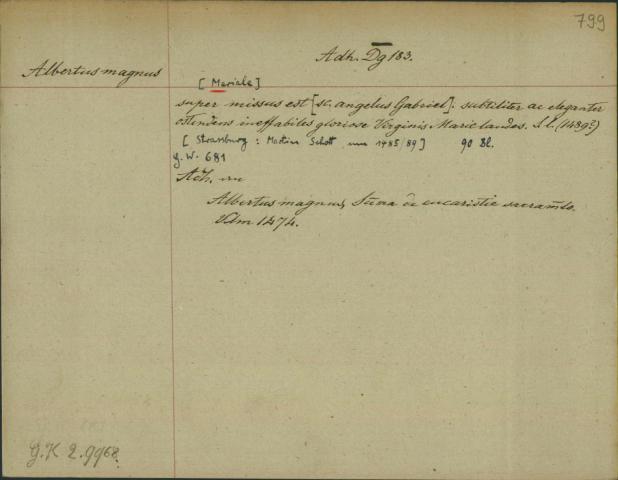 799
Adh. Dg 183.
Albertus magnus
[Mariale]
super missus est [sc. angelus Gabriel]. subtiliter ac eleganter
ostendens ineffabiles gloriose Virginis Marie laudes. S. l. (1489?)
[Strassburg: Martin Schott, um 1485/89] 90 Bl.
G.W. 681
Adh. an
Albertus magnus, Sūma de eucaristie sacramēto.
Ulm 1474.
G.K 2.9968.